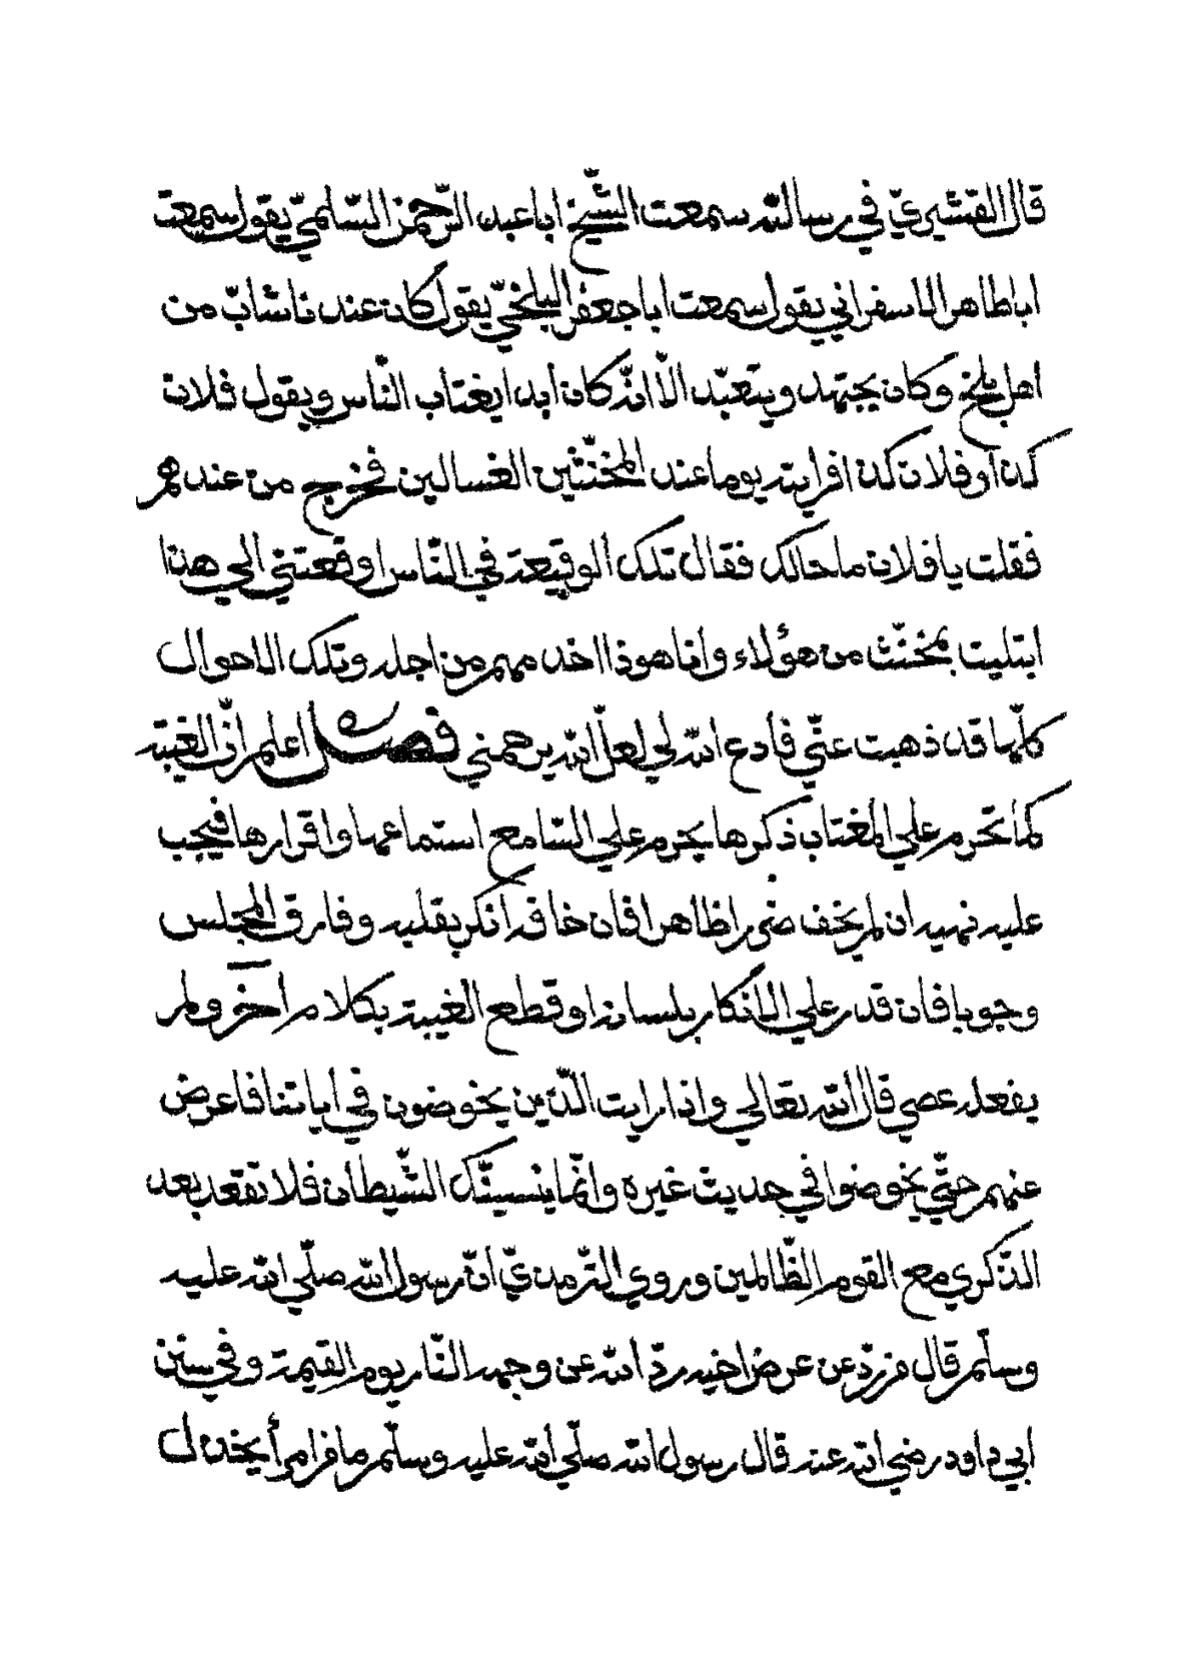 قال القشيريّ في رسالته سمعت الشّيخ ابا عبد الرّحمن السّلميّ يقول سمعت
ابا طاهر الاسفراني يقول سمعت ابا جعفر البلخيّ يقول كان عندنا شابّ من
اهل بلخ وكان يجتهد ويتعبّد الّا انّه كان ابدا يغتاب النّاس ويقول فلان
كذا وفلان كذا فرايته يوما عند المخنّثين الغسالين فخرج من عندهم
فقلت يا فلان ما حالك فقال تلك الوقيعة في النّاس اوقعتني الي هذا
ابتليت بمخنّث من هؤلاء وانا هوذا اخدمهم من اجله وتلك الاحوال
كلّها قد ذهبت عنّي فادع الله لي لعلّ الله يرحمني فصل اعلم انّ الغيبة
كما تحرم علي المغتاب ذكرها يحرم علي السّامع استماعها واقرارها فيجب
عليه نهيه ان لم يخف ضررا ظاهرا فان خافه انكر بقلبه وفارق المجلس
وجوبا فان قدر علي الانكار بلسانه او قطع الغيبة بكلام آخر ولم
يفعله عصي قال الله تعالي واذا رايت الّذين يخوضون في أياتنا فاعرض
عنهم حتّي يخوضوا في حديث غيره وامّا ينسينّك الشّيطان فلا تقعد بعد
الذّكري مع القوم الظّالمين وروي التّرمذيّ أنّ رسول الله صلّي الله عليه
وسلّم قال من ردّ عن عرض اخيه ردّ الله عن وجهه النّار يوم القيمة وفي سنن
ابي داود رضي الله عنه قال رسول الله صلّي الله عليه وسلّم ما من امرأ يخذل